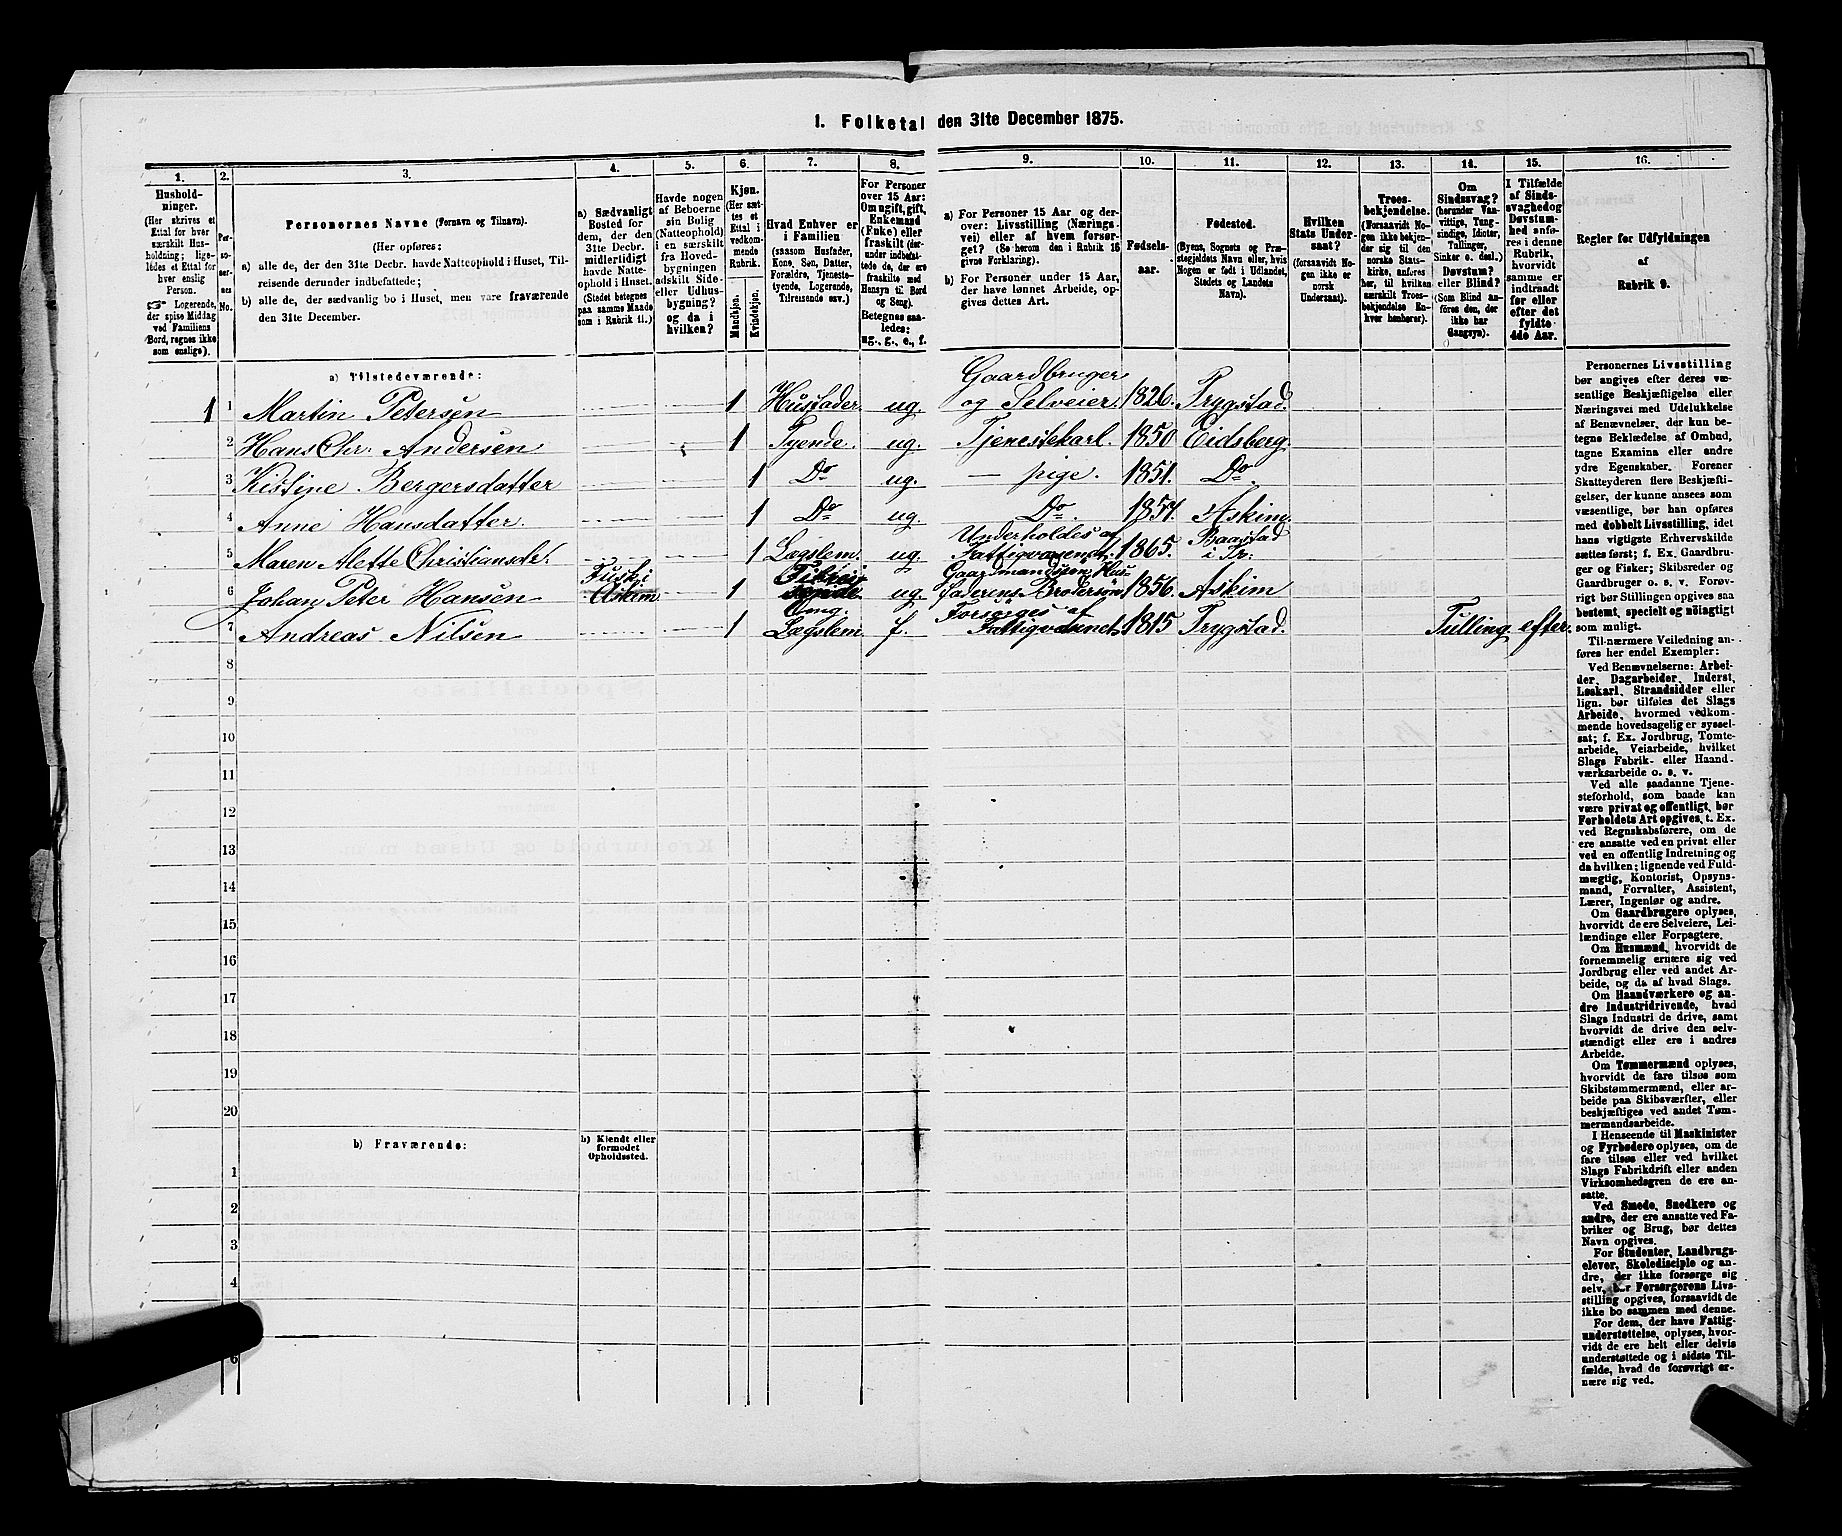 1. Folketal den 31te December 1875.
1. 2. 3. 4. 5. 6. 7. 8. 9. 10. 11. 12. 13. 14. 15. 16.
Hushold-
ninger.
(Her skrives et
Ettal for hver
særskilt Hus-
holdning; lige-
ledes et Ettal for
hver enslig
Person.
☞ Logerende,
der spise Middag
ved Familiens
Bord, regnes ikke
som enslige).
Per-
so-
ner-
nes
No.
Personernes Navne (Fornavn og Tilnavn).
(Her opføres:
a) alle de, der den 31te Decbr. havde Natteophold i Huset, Til-
reisende derunder indbefattede;
b) alle de, der sædvanlig bo i Huset, men vare fraværende
den 31te December.
a) Sædvanligt
Bosted for
dem, der den
31te Decbr.
midlertidigt
havde Natte-
ophold i Huset.
(Stedet betegnes
paa samme Maade
som i Rubrik 11.)
Havde nogen
af Beboerne
sin Bolig
(Natteophold)
i en særskilt
fra Hoved-
bygningen
adskilt Side-
eller Udhus-
bygning?
og da i
hvilken?
Kjøn.
(Her sæt-
tes et
Ettal i
vedkom-
mende
Rubrik.
Mandkjøn.
Kvindekjøn.
Hvad Enhver er
i Familien
(saasom Husfader,
Kone, Søn, Datter,
Forældre, Tjeneste-
tyende, Logerende,
Tilreisende osv.)
For Personer
over 15 Aar:
Om ugift, gift,
Enkemand
(Enke) eller
fraskilt (der-
under indbefat-
tede de, der ere
fraskilte med
Hensyn til Bord
og Seng).
Betegnes saa-
ledes:
ug., g., e., f.
a) For Personer 15 Aar og der-
over: Livsstilling (Nærings-
vei) eller af hvem forsør-
get? (Se herom den i Rubrik 16
givne Forklaring).
b) For Personer under 15 Aar,
der have lønnet Arbeide, op-
gives dettes Art.
Fødsels-
aar.
Fødested.
(Byens, Sognets og Præ-
stegjeldets Navn eller, hvis
Nogen er født i Udlandet,
Stedets og Landets
Navn).
Hvilken
Stats Under-
saat?
(forsaavidt No-
gen ikke er
norsk
Undersaat).
Troes-
bekjendelse.
(Forsaavidt No-
gen ikke bekjen-
der sig til
norske Stats-
kirke, anføres
her, til hvilken
særskilt Troes-
bekjendelse En-
hver henhører).
Om
Sindssvag?
(herunder Van-
vittige, Tung-
sindige, Idioter,
Tullinger,
Sinker o. desl.)
Døvstum?
eller Blind?
(Som Blind an-
føres den, der
ikke har
Gangsyn).
I Tilfælde
af Sinds-
svaghed og
Døvstum-
hed anfø-
res i denne
Rubrik,
hvorvidt
samme er
indtraadt
før eller
efter det
fyldte
4de Aar.
Regler for Udfyldningen
af
Rubrik 9.
a) Tilstedeværende:
1 1 Martin Petersen 1 Husfader. ug. Gaardbruger
og Selveier. 1826. Trygstad.
2 Hans Chr. Andersen 1 Tyende. ug. Tjenestekarl. 1850. Eidsberg.
3 Kistine Bergersdatter 1 Do ug. — pige. 1851. Do.
4 Anne Hansdatter. 1 Do ug. Do. 1854. Askim.
5 Maren Alette Christiansdt. 1 Lægslem. ug. Underholdes af
Fattigvæsenet. 1865. Baastad
i Tr.
6 Johan Peter Hansen i
Askim 1 ug. Gaardmandssøn, Hus-
faderens Brodersøn 1856. Askim
7 Andreas Nilsen 1 Omg.
Lægslem f. Forsørges af
Fattigvæsnet 1815 Trygstad. Tulling. efter.
8
9
10
11
12
13
14
15
16
17
18
19
20
b) Fraværende: b) Kjendt eller
formodet
Opholdssted.
1
2
3
4
6
Personernes Livsstilling
bør angives efter deres væ-
sentlige Beskjæftigelse eller
Næringsvei med Udelukkelse
af Benævnelser, der kun be-
tegne Beklædelse af Ombud,
tagne Examina eller andre
ydre Egenskaber. Forener
Skatteyderen flere Beskjæfti-
gelser, der kunne ansees som
væsentlige, bør han opføres
med dobbelt Livsstilling, idet
hans vigtigste Erhvervskilde
sættes først; f. Ex. Gaardbru-
ger og Fisker; Skibsreder og
Gaardbruger o. s. v. Forøv-
rigt bør Stillingen opgives saa
bestemt, specielt og nøiagtigt
som muligt.
Til nærmere Veiledning an-
føres her endel Exempler:
Ved Benævnelserne: Arbei-
der, Dagarbeider, Inderst,
Løskarl, Strandsidder eller
lign. bør tilføies det Slags
Arbeide, hvormed vedkom-
mende hovedsagelig er syssel-
sat; f. Ex. Jordbrug, Tomte-
arbeide, Veiarbeide, hvilket
Slags Fabrik- eller Haand-
værksarbeide o. s. v.
Ved alle saadanne Tjene-
steforhold, som baade kan
være privat og offentligt, bør
Forholdets Art opgives, t. Ex.
ved Regnskabsførere, om de
ere ansatte ved en privat eller
ved en offentlig Indretning og
da hvilken; lignende ved Fuld-
mægtig, Kontorist, Opsyns-
mand, Forvalter, Assistent,
Lærer, Ingeniør og andre.
Om Gaardbrugere oplyses,
hvorvidt de ere Selveiere, Lei-
lændinge eller Forpagtere.
Om Husmænd, hvorvidt de
fornemmelig ernære sig ved
Jordbrug eller ved andet Ar-
beide, og da af hvad Slags.
Om Haandværkere og an-
dre Industridrivende, hvad
Slags Industri de drive, samt
hvorvidt de drive den selv-
stændigt eller ere i andres
Arbeide.
Om Tømmermænd oplyses,
hvorvidt de fare tilsøs som
Skibstømmermænd, eller ar-
beide paa Skibsværfter, eller
beskjæftiges ved andet Tøm-
mermandsarbeide.
I Henseende til Maskinister
og Fyrbødere oplyses, om de
fare tilsøs eller ved hvilket
Slags Fabrikdrift eller anden
Virksomhedsgren de ere an-
satte.
Ved Smede, Snedkere og
andre, der ere ansatte ved Fa-
briker og Brug, bør dettes
Navn opgives.
For Studenter, Landbrugs-
elever, Skoledisciple og an-
dre, der ikke forsørge sig
selv, bør Forsørgerens Livs-
stilling opgives, forsaavidt de
ikke bo sammen med denne.
For dem, der have Fattig-
understøttelse, oplyses, hvor-
vidt de ere helt eller delvis
understøttede og i sidste Til-
fælde, hvad de forøvrigt er-
nære sig ved.